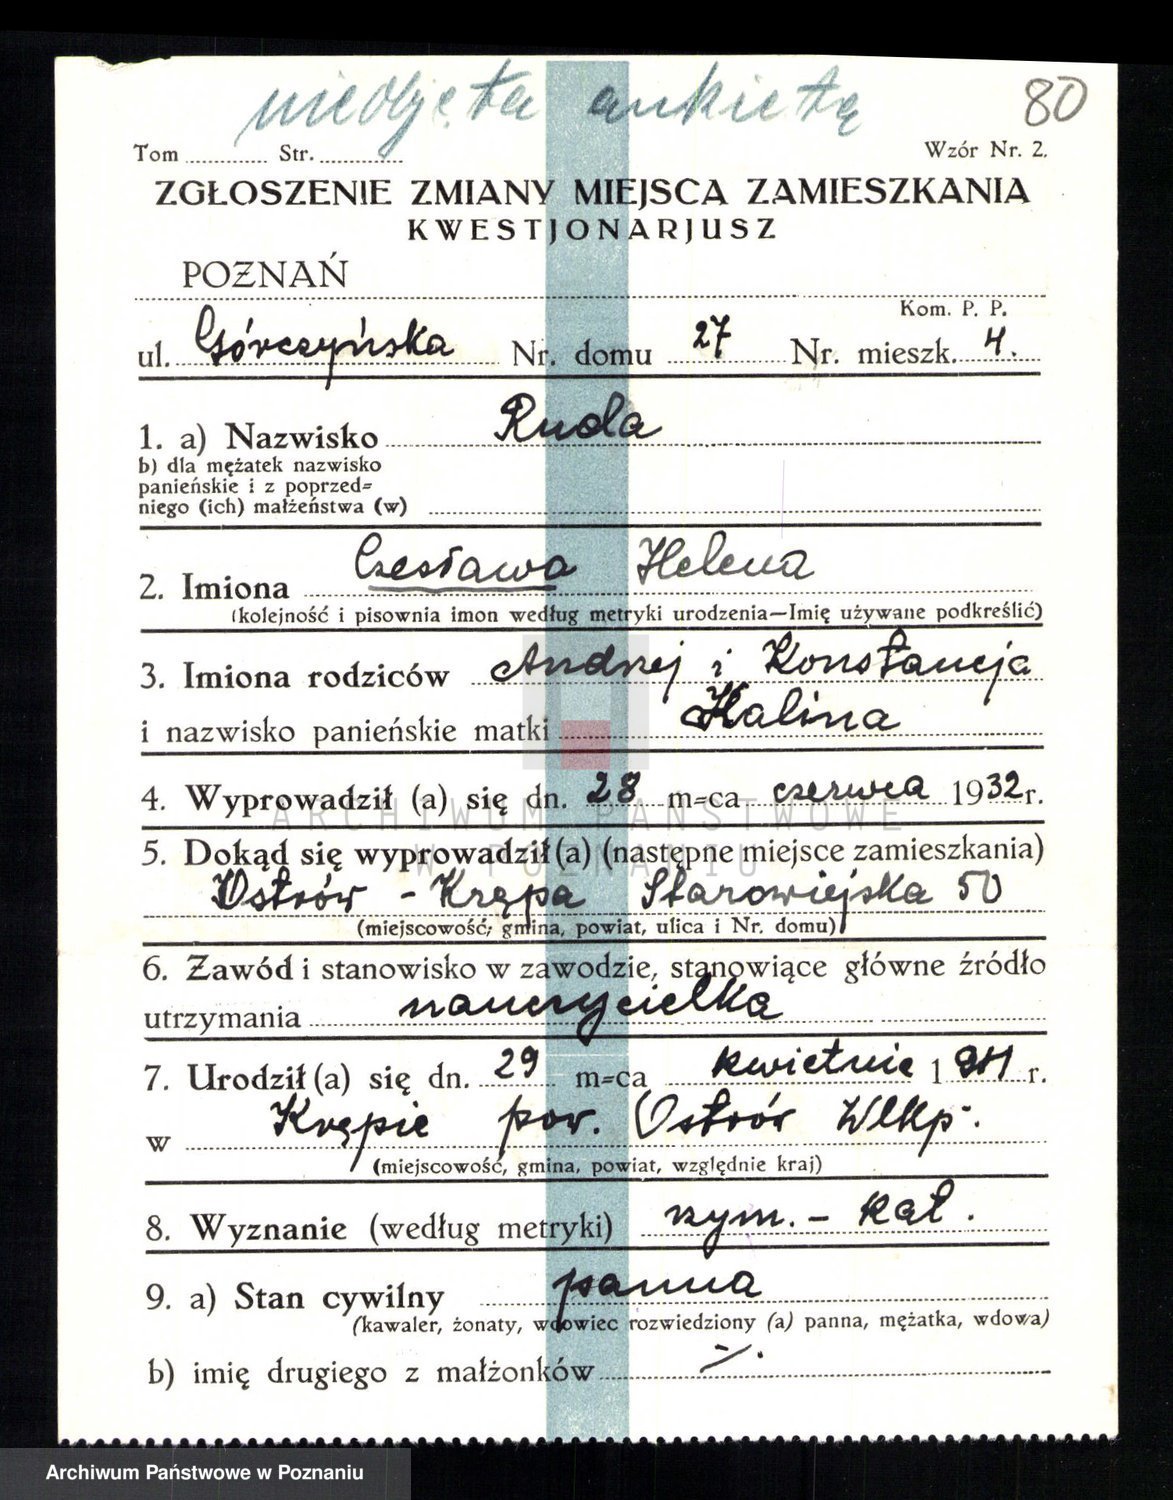 nieobjęta ankietą 80
Tom ............ Str. ............ Wzór Nr. 2.
ZGŁOSZENIE ZMIANY MIEJSCA ZAMIESZKANIA
KWESTJONARJUSZ
POZNAŃ
Kom. P. P.
ul. Górczyńska Nr. domu 27 Nr. mieszk. 4.
1. a) Nazwisko Ruda
b) dla mężatek nazwisko
panieńskie i z poprzed=
niego (ich) małżeństwa (w)
2. Imiona Czesława Helena
(kolejność i pisownia imon według metryki urodzenia—Imię używane podkreślić)
3. Imiona rodziców Andrzej i Konstancja
i nazwisko panieńskie matki Kalina
4. Wyprowadził (a) się dn. 28 m=ca czerwca 1932 r.
ARCHIWUM PAŃSTWOWE
5. Dokąd się wyprowadził(a) (następne miejsce zamieszkania)
W POZNANIU
Ostrów - Krępa Starowiejska 50
(miejscowość, gmina, powiat, ulica i Nr. domu)
6. Zawód i stanowisko w zawodzie, stanowiące główne źródło
utrzymania nauczycielka
7. Urodził(a) się dn. 29 m=ca kwietnie 1911 r.
w Krępie pow. Ostrów Wlkp.
(miejscowość, gmina, powiat, względnie kraj)
8. Wyznanie (według metryki) rzym. - kat.
9. a) Stan cywilny panna
(kawaler, żonaty, wdowiec rozwiedziony (a) panna, mężatka, wdowa)
b) imię drugiego z małżonków -/.
Archiwum Państwowe w Poznaniu